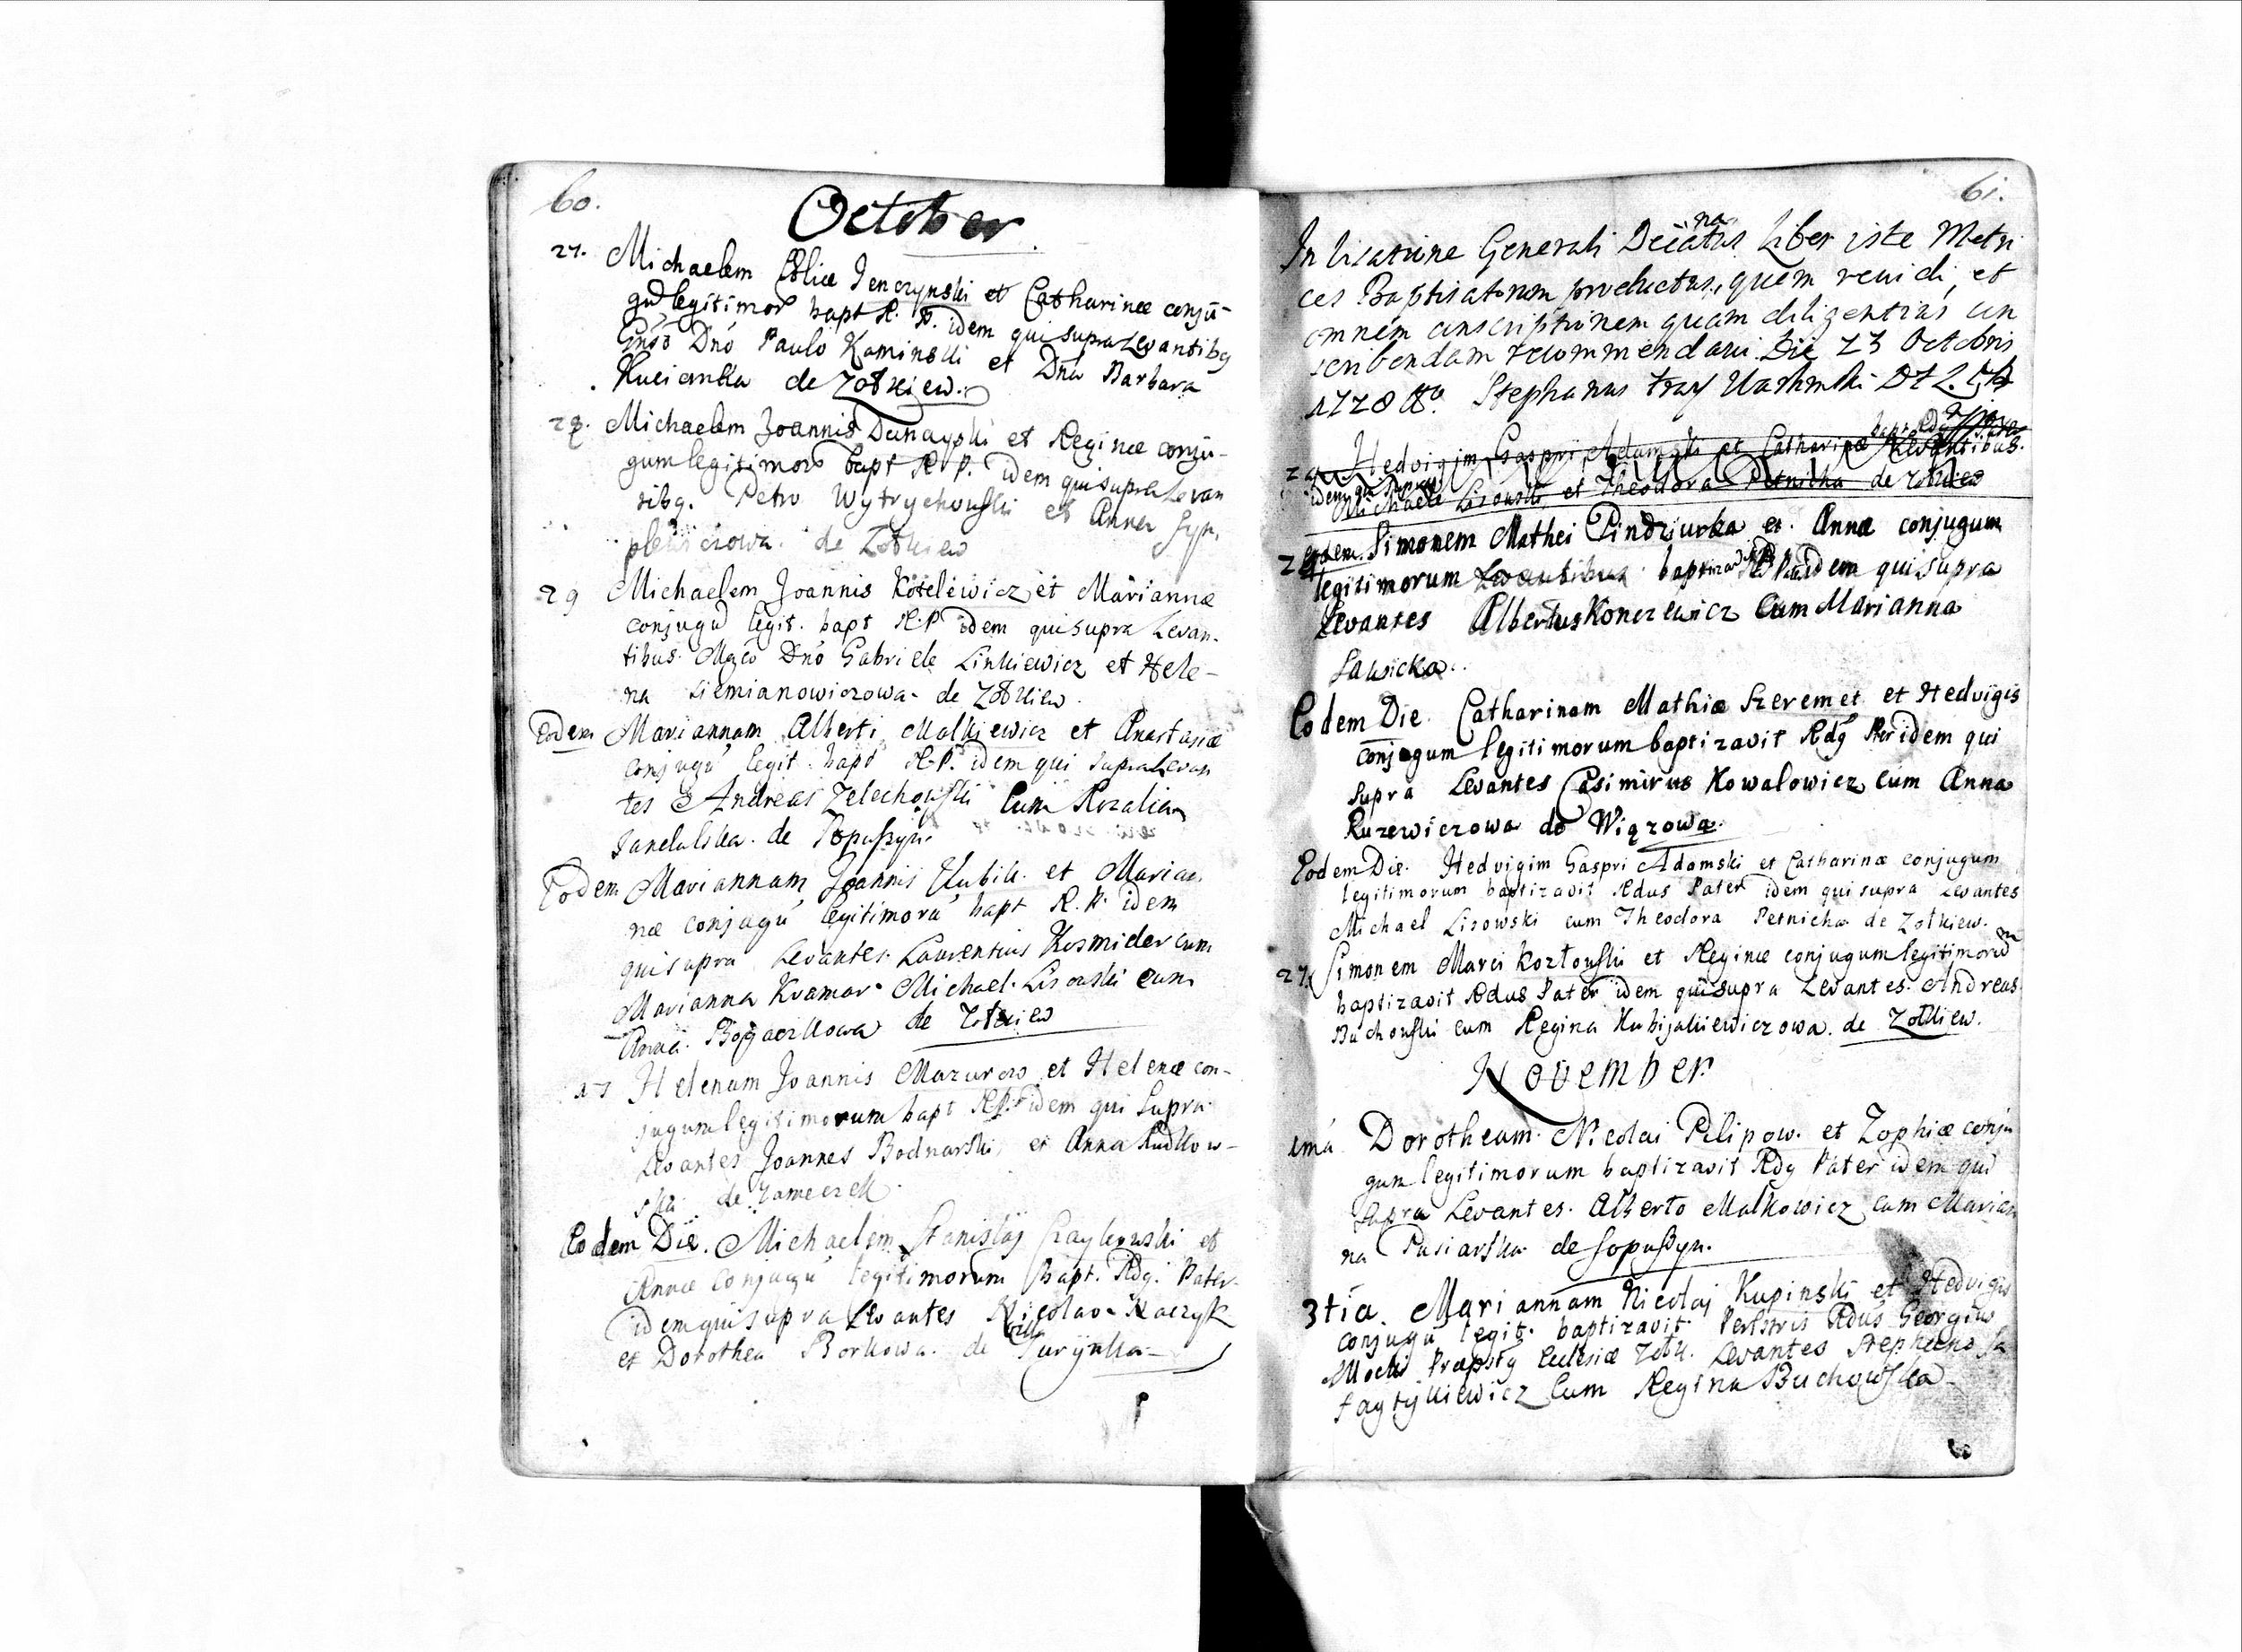 60.
October
27. Michaelem Eliæ Jenczynski et Catharinæ conju-
gū legitimor bapt R. P. idem qui supra Levantibq
Gnōō Dnō Paulo Kaminski et Dnā Barbara
de Zołkiew.
28. Michaelem Joannis Dunayski et Reginæ conju-
gum legitimorō bapt R P. idem qui supra Levan
tibq. Petro Wytrychouski et Anna
de Zołkiew
29 Michaelem Joannis Kotelewicz et Mariannæ
conjugū legit. bapt R.P idem qui supra Levan-
tibus. Dnō Gabriele Linkiewicz et Hele-
na Siemianowiczowa de Zołkiew.
Eodem Mariannam Alberti Malkiewicz et Anastasiæ
conjugū legit. bapt R.P. idem qui supra Levan
tes Andreas Zelechouski Cum Rozalia
de Sopuszyn.
Eodem Mariannam Joannis Kubik. et Marian
næ conjugū legitimorū bapt R. P. idem
qui supra Levantes. Laurentius Kosmider cum
Marianna Kramar. Michael Lisouski cum
Anna. Bogaczkowa de Zołkiew
Helenam Joannis Mazurow et Helenæ con-
jugum legitimorum bapt R.P. idem qui Supra
Levantes Joannes Bodnarski, et Anna Rudkow-
ska de Zameczek
Eodem Die. Michaelem Stanislaj Czaykowski et
Annæ Conjugū legitimorum bapt. Rdq. Pater
idem qui supra Levantes Nicolao Kaczyk
et Dorothea Borkowa. de Turynka
61.
In Generali Liber iste Metri
ces Baptisatorum productus, quem reuidi, et
omnem inscriptionem quam diligentias in
scribendam recommendaui Die 23 Octobris
1728 Stephanus
Hedvigim Gaspri Adamski et Catharinæ Levantibus
idem qui supra
Michaele Lisouski et Theodora Petnicka de Zołkiew
Eodem. Simonem Mathei Pindziurka et. Anna conjugum
legitimorum Levantibus idem qui supra
Levantes Albertus Konczewicz Cum Marianna
Sawicka.
Eodem Die. Catharinam Mathiæ Szeremet et Hedvigis
conjugum legitimorum baptizavit Rdq Pter idem qui
supra Levantes Casimirus Kowalowicz cum Anna
Ruzewiczowa de Wiązowa.
Eodem Die. Hedvigim Gaspri Adamski et Catharinæ conjugum
legitimorum baptizavit Rdus Pater idem qui supra Levantes
Michael Lisowski cum Theodora Petnicka de Zołkiew.
27. Simonem Marci Kozłouski et Reginæ conjugum legitimorum
baptizavit Rdus Pater idem qui supra Levantes. Andreas
Buchouski cum Regina Kubijakiewiczowa. de Zołkiew.
November
1má Dorotheam. Nicolai Pilipow. et Zophiæ conju
gum legitimorum baptizavit Rdq Pater idem qui
supra Levantes. Alberto Malkowicz cum Marian
na Pasiarska de Sopuszyn.
3tia. Mariannam Nicolaj Kupinski et Hedvigis
conjugū legit. baptizavit. Perlstris Rdus Georgius
Præpstq Eclesiæ Zołk. Levantes Stephano Sa
faytykiewicz Cum Regina Buchowska